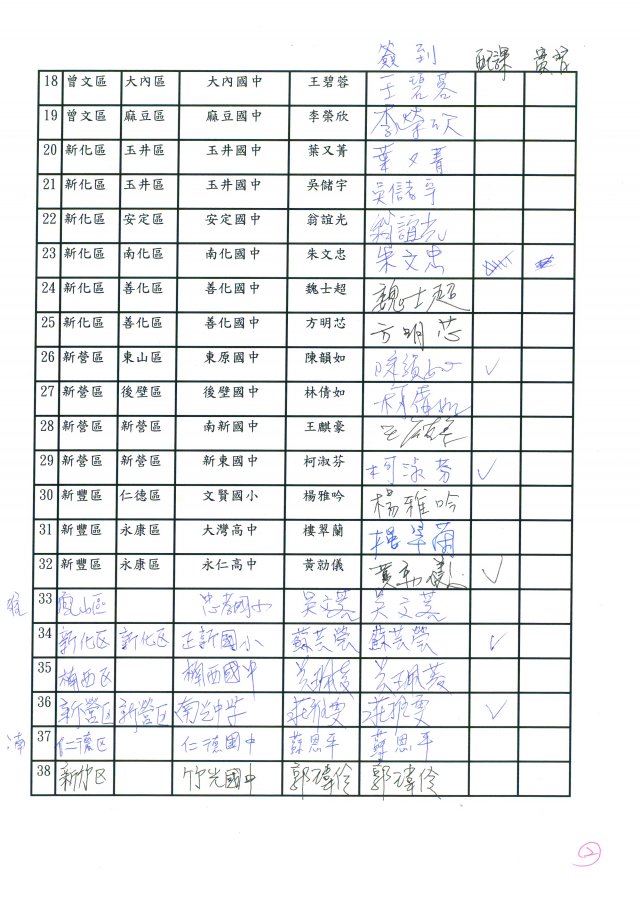 簽到 配課
18 曾文區 大內區 大內國中 王碧蓉 王碧蓉
19 曾文區 麻豆區 麻豆國中 李榮欣 李榮欣
20 新化區 玉井區 玉井國中 葉又菁 葉又菁
21 新化區 玉井區 玉井國中 吳儲宇 吳儲宇
22 新化區 安定區 安定國中 翁誼光 翁誼光
23 新化區 南化區 南化國中 朱文忠 朱文忠
24 新化區 善化區 善化國中 魏士超 魏士超
25 新化區 善化區 善化國中 方明芯 方明芯
26 新營區 東山區 東原國中 陳韻如 陳韻如 ✓
27 新營區 後壁區 後壁國中 林倩如 林倩如
28 新營區 新營區 南新國中 王麒豪
29 新營區 新營區 新東國中 柯淑芬 柯淑芬 ✓
30 新豐區 仁德區 文賢國小 楊雅吟 楊雅吟
31 新豐區 永康區 大灣高中 樓翠蘭 樓翠蘭
32 新豐區 永康區 永仁高中 黃勍儀 黃勍儀 ✓
33 鳳山區 忠孝國小
34 新化区 新化区 正新國小 蘇芸瑩 蘇芸瑩 ✓
35 楠西区 楠西國中
36 新營区 新營区 ✓
37 仁德区 仁德國中 蘇恩平 蘇恩平
38 新竹区 竹光國中 郭瑋伶 郭瑋伶
2